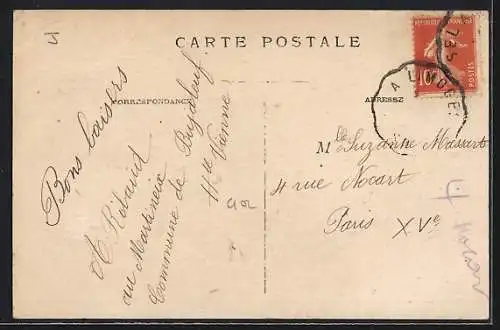 CARTE POSTALE
CORRESPONDANCE
ADRESSE
REPUBLIQUE FRANÇAISE
10
POSTES
A LIMOGES
Bons baisers
A Ribaud
au Martineix
Commune de Bujaleuf
Hte Vienne
Mlle Suzanne Massart
4 rue Nocart
Paris XVe
4